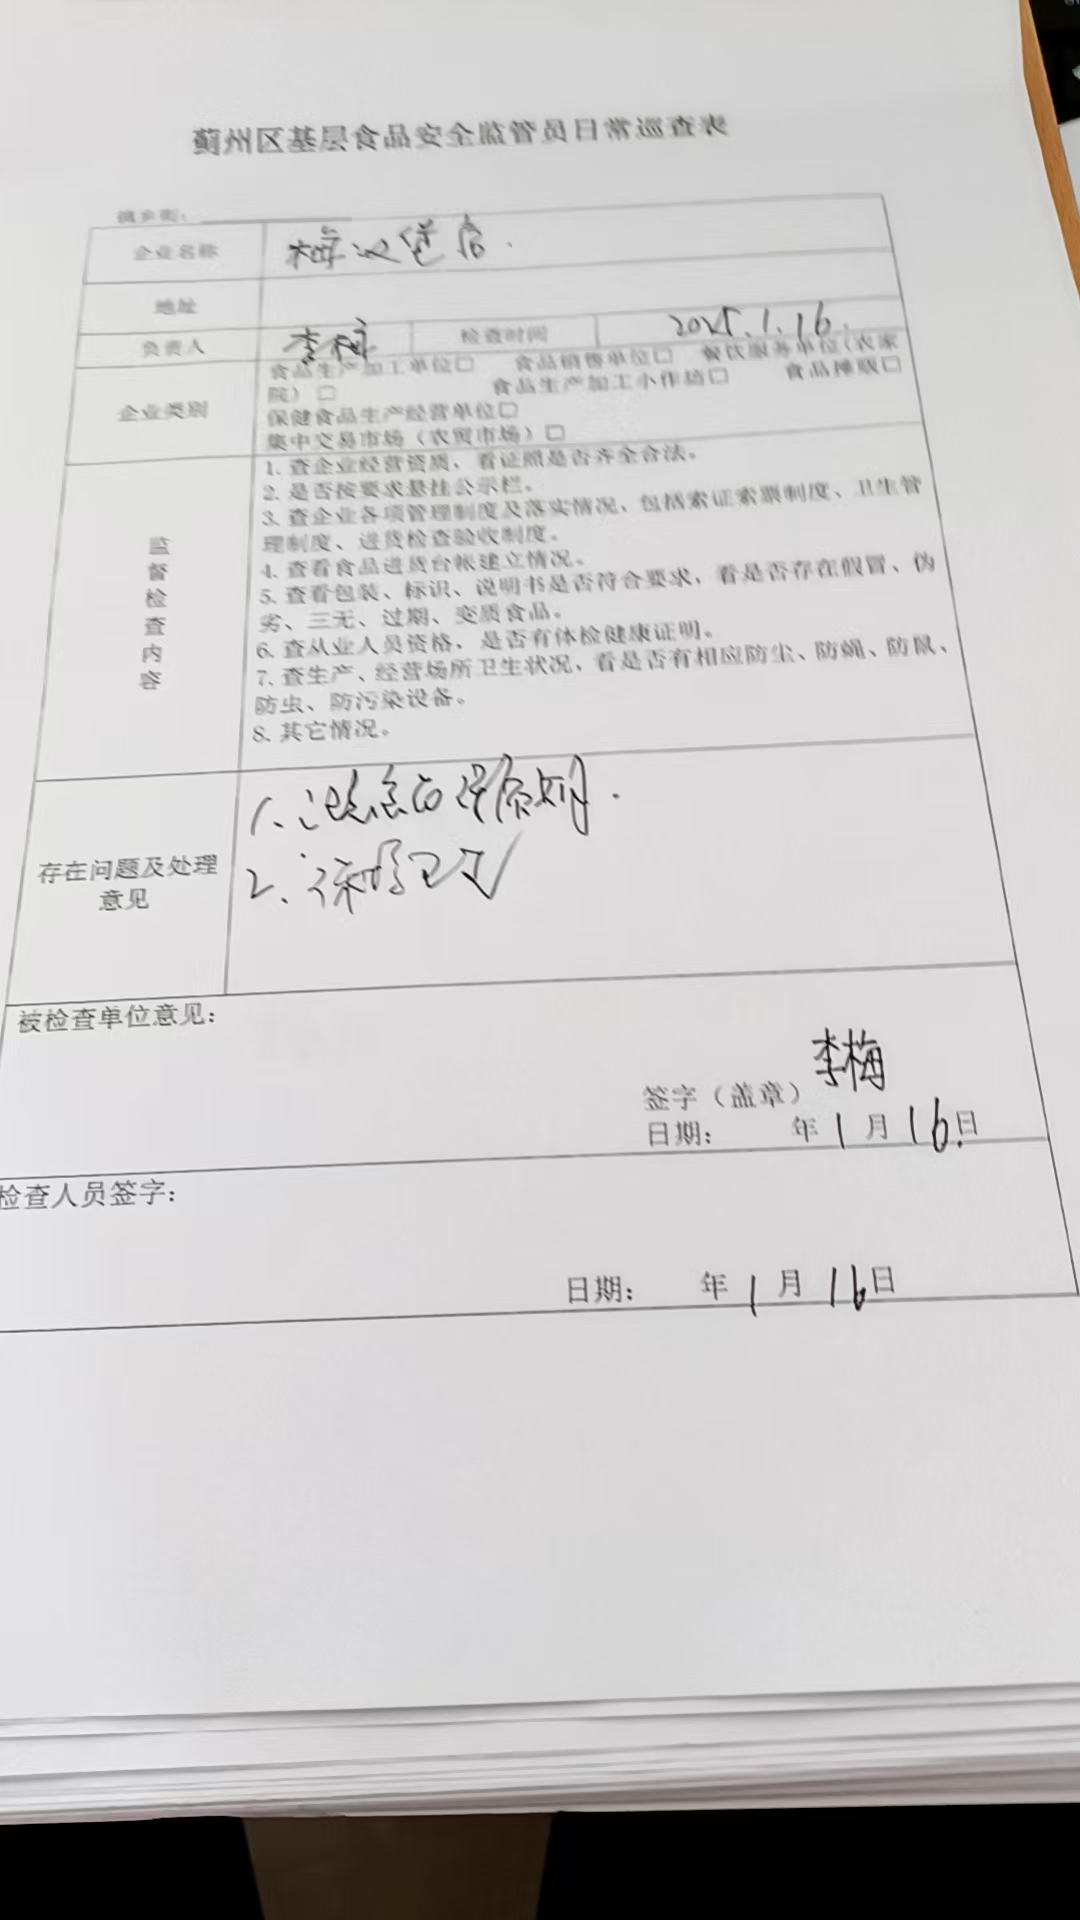 蓟州区基层食品安全监管员日常巡查表
镇乡街：
企业名称 梅
地址
负责人 李梅 检查时间 2025.1.16.
企业类别 食品生产加工单位□ 食品销售单位□ 餐饮服务单位（农家
院）□ 食品生产加工小作坊□ 食品摊贩□
保健食品生产经营单位□
集中交易市场（农贸市场）□
监督检查内容
1. 查企业经营资质，看证照是否齐全合法。
2. 是否按要求悬挂公示栏。
3. 查企业各项管理制度及落实情况，包括索证索票制度、卫生管
理制度、进货检查验收制度。
4. 查看食品进货台帐建立情况。
5. 查看包装、标识、说明书是否符合要求，看是否存在假冒、伪
劣、三无、过期、变质食品。
6. 查从业人员资格，是否有体检健康证明。
7. 查生产、经营场所卫生状况，看是否有相应防尘、防蝇、防鼠、
防虫、防污染设备。
8. 其它情况。
存在问题及处理
意见
1. 注意食品保质期.
2. 卫生
被检查单位意见：
签字（盖章） 李梅
日期： 年1月16日
检查人员签字：
日期： 年1月16日